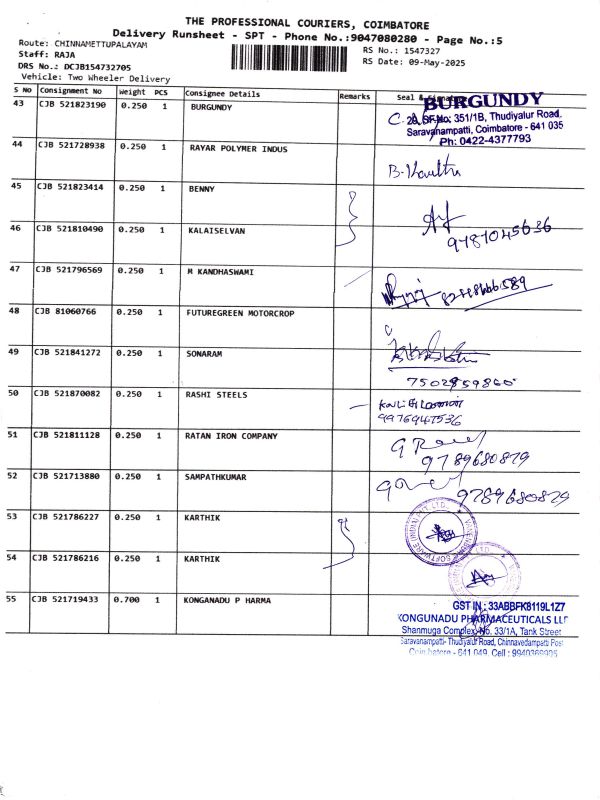 THE PROFESSIONAL COURIERS, COIMBATORE
Delivery Runsheet - SPT - Phone No.:9047080280 - Page No.:5
Route: CHINNAMETTUPALAYAM
Staff: RAJA
DRS No.: DCJB154732705
Vehicle: Two Wheeler Delivery
RS No.: 1547327
RS Date: 09-May-2025
S No Consignment No Weight PCS Consignee Details Remarks Seal & Signature
43 CJB 521823190 0.250 1 BURGUNDY
BURGUNDY
29, SF.No: 351/1B, Thudiyalur Road,
Saravanampatti, Coimbatore - 641 035
Ph: 0422-4377793
44 CJB 521728938 0.250 1 RAYAR POLYMER INDUS
45 CJB 521823414 0.250 1 BENNY
46 CJB 521810490 0.250 1 KALAISELVAN
9787045636
47 CJB 521796569 0.250 1 M KANDHASWAMI
48 CJB 81060766 0.250 1 FUTUREGREEN MOTORCROP
49 CJB 521841272 0.250 1 SONARAM
7502959860
50 CJB 521870082 0.250 1 RASHI STEELS
9976947536
51 CJB 521811128 0.250 1 RATAN IRON COMPANY
9789680879
52 CJB 521713880 0.250 1 SAMPATHKUMAR
9789680879
53 CJB 521786227 0.250 1 KARTHIK
54 CJB 521786216 0.250 1 KARTHIK
55 CJB 521719433 0.700 1 KONGANADU P HARMA
GST IN : 33ABBFK8119L1Z7
KONGUNADU PHARMACEUTICALS LLP
Shanmuga Complex, No. 33/1A, Tank Street
Saravanampatti- Thudiyalur Road, Chinnavedampatti Post
Coimbatore - 641 049. Cell : 9940369935